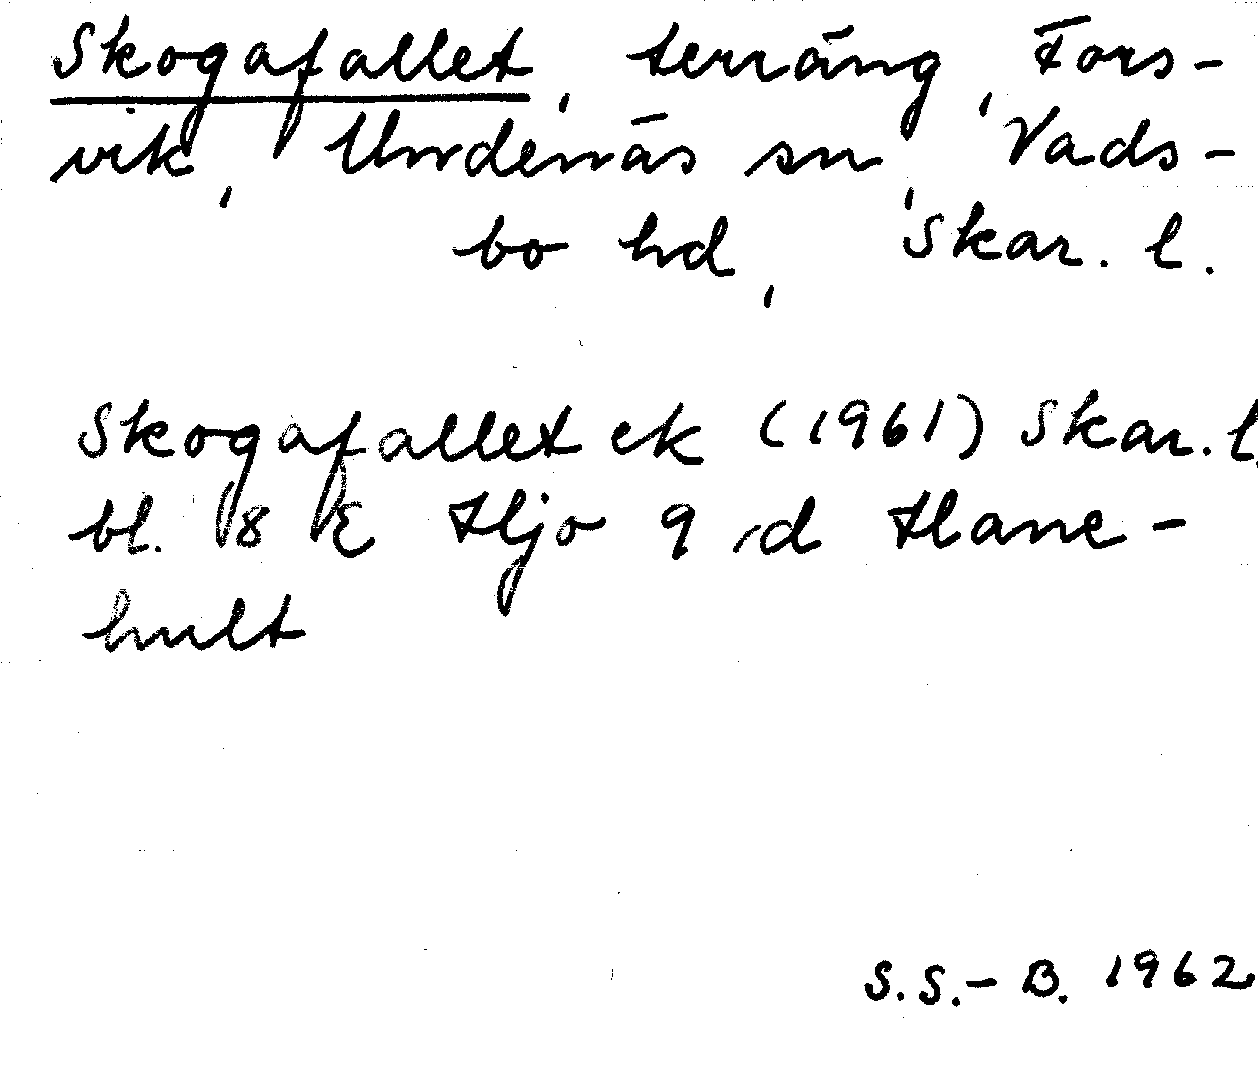 Skogafallet, terräng, Fors-
vik, Undenäs sn, Vads-
bo hd, Skar. l.
Skogafallet ek (1961) Skar. l.
bl. 8 E Hjo 9 d Hane-
hult
S.S.-B. 1962